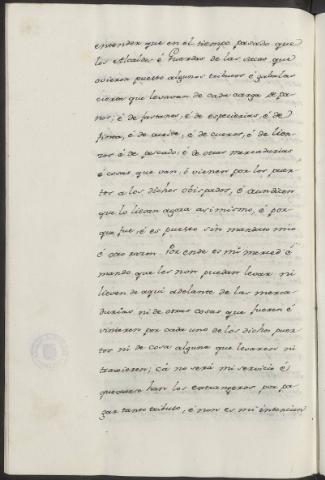 entender que en el tiempo pasado que
los Alcaldes é Guardas de las sacas que
ovieron puesto algunos tributos é gabelas
ciertas que levavan de cada carga de pa-
nos, é de fustanes, é de especierias, é de
, é de aceite, é de cueros, é de lien-
zos é de pescado, é de otras mercadurias
é cosas que van, é vienen por los puer-
tos a los dichos obispados, é aun dicen
que lo lievan agora asi mismo, é por-
que fue é es puesto sin mandado mio
é sin razon. Por ende es mi merced é
mando que les non puedan levar ni
lieven de aqui adelante de las merca-
durias ni de otras cosas que fueren é
vinieren por cada uno de los dichos puer-
tos ni de cosa alguna que levaren ni
traxieren; cá no será mi servicio é
quexarse han los estrangeros por pa-
gar tanto tributo, é non es mi intencion